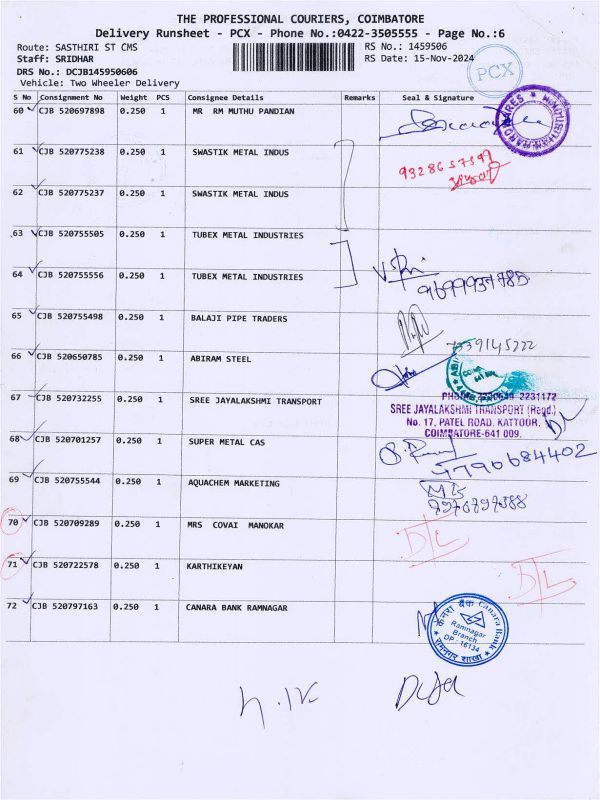 THE PROFESSIONAL COURIERS, COIMBATORE
Delivery Runsheet - PCX - Phone No.:0422-3505555 - Page No.:6
Route: SASTHIRI ST CMS
RS No.: 1459506
Staff: SRIDHAR
RS Date: 15-Nov-2024
PCX
DRS No.: DCJB145950606
Vehicle: Two Wheeler Delivery
S No Consignment No Weight PCS Consignee Details Remarks Seal & Signature
60 CJB 520697898 0.250 1 MR RM MUTHU PANDIAN
61 CJB 520775238 0.250 1 SWASTIK METAL INDUS
62 CJB 520775237 0.250 1 SWASTIK METAL INDUS
63 CJB 520755505 0.250 1 TUBEX METAL INDUSTRIES
64 CJB 520755556 0.250 1 TUBEX METAL INDUSTRIES
65 CJB 520755498 0.250 1 BALAJI PIPE TRADERS
66 CJB 520650785 0.250 1 ABIRAM STEEL
67 CJB 520732255 0.250 1 SREE JAYALAKSHMI TRANSPORT
2231172
SREE JAYALAKSHMI TRANSPORT (Regd.)
No. 17, PATEL ROAD, KATTOOR.
COIMBATORE-641 009.
DL
68 CJB 520701257 0.250 1 SUPER METAL CAS
9790684402
69 CJB 520755544 0.250 1 AQUACHEM MARKETING
70 CJB 520709289 0.250 1 MRS COVAI MANOKAR
DL
71 CJB 520722578 0.250 1 KARTHIKEYAN
DL
72 CJB 520797163 0.250 1 CANARA BANK RAMNAGAR
केनरा बैंक Canara Bank
Ramnagar
Branch
DP - 16134
रामनगर शाखा